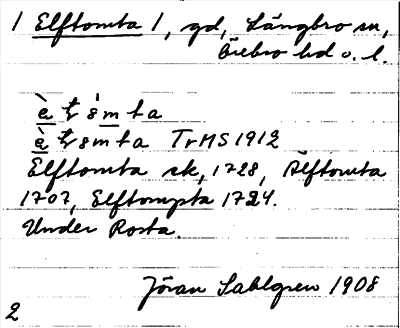 1 Elftomta 1, gd, Längbro sn,
Örebro hd o. l.
TrMS 1912
Elftomta sk, 1728, Älftomta
1707, Elftompta 1724.
Under Rosta.
Jöran Sahlgren 1908
2